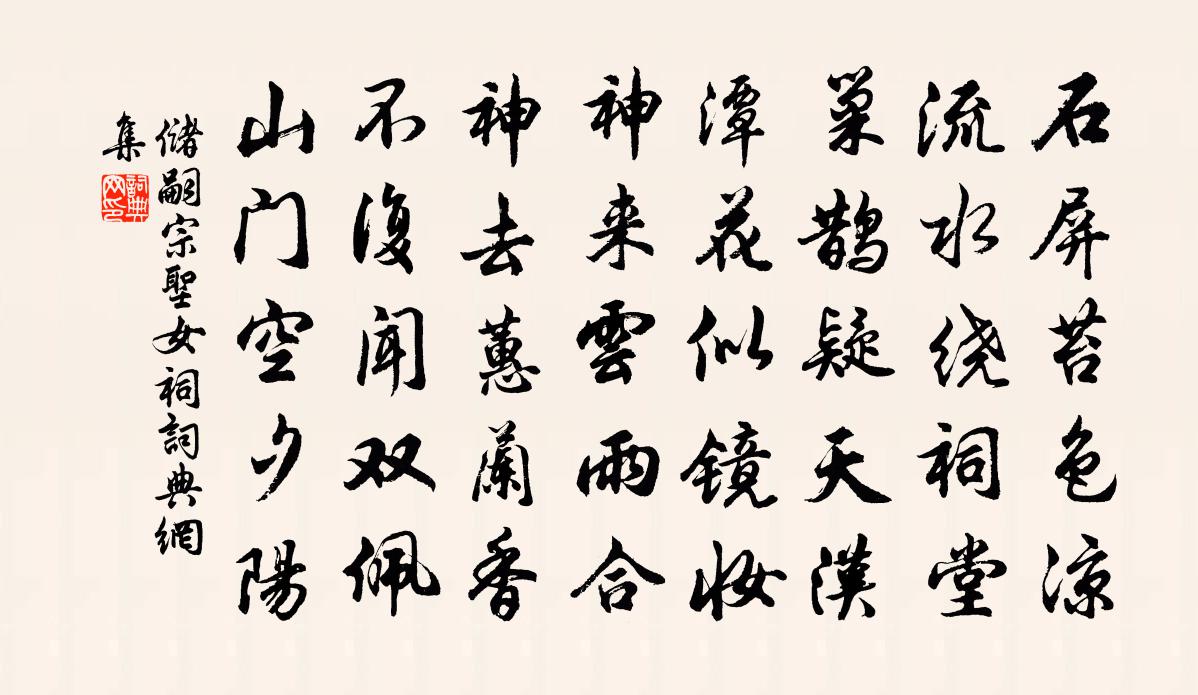 石屏苔色凉
流水绕祠堂
巢鹊疑天漢
潭花似镜妆
神来雲雨合
神去蕙蘭香
不復闻双佩
山门空夕陽
儲嗣宗聖女祠詞典網
集
詞典网印